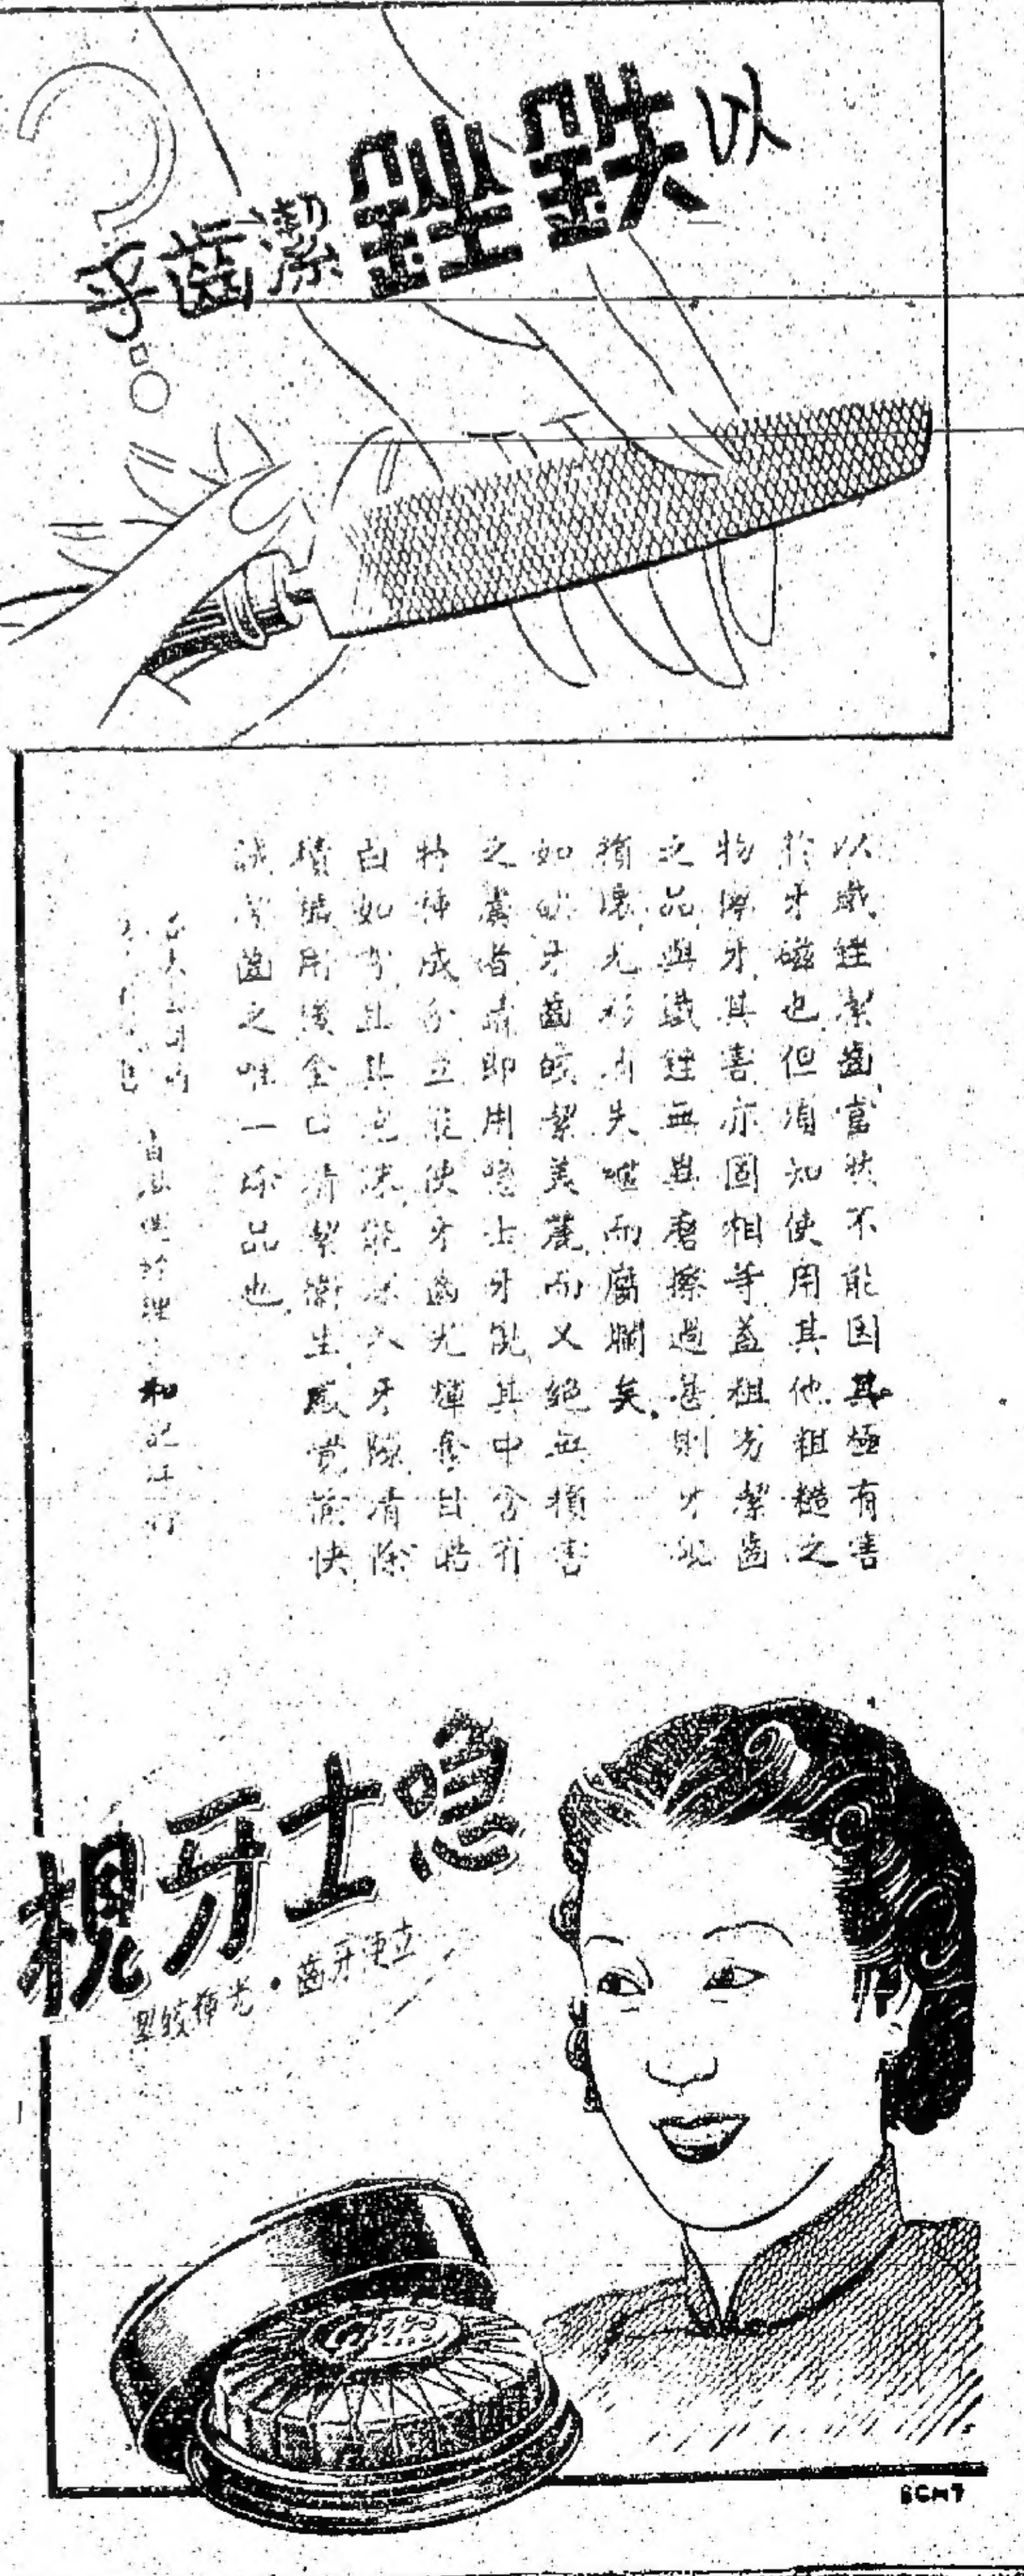 以鉄銼潔齒乎?
以鐵銼潔齒當然不能因其極有害
於牙磁也但須知使用其他粗糙之
物擦牙其害亦固相等蓋粗劣潔齒
之品與鐵銼無異磨擦過甚則牙
損壞光彩消失繼而腐爛矣
如欲牙齒皎潔美麗而又絕無損害
之虞者請即用喼士牙梘其中含有
特種成分立能使牙齒光輝奪目皓
白如雪且其泡沫能滲入牙隙清除
積垢用後全口清潔衛生感覺愉快
誠潔齒之唯一珍品也
各大公司均
香港總經理 和記洋行
喼士牙梘
立使牙齒・光輝皎
Gibbs
BCM7